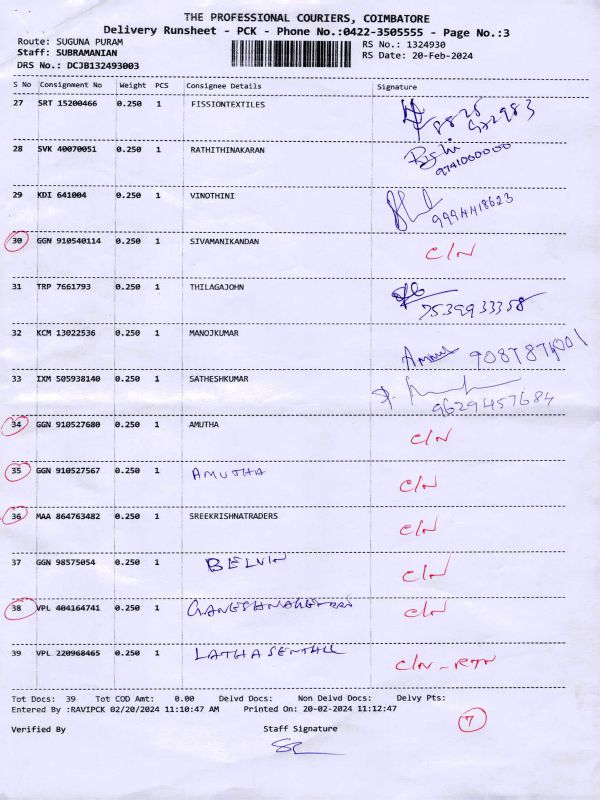 THE PROFESSIONAL COURIERS, COIMBATORE
Delivery Runsheet - PCK - Phone No.:0422-3505555 - Page No.:3
Route: SUGUNA PURAM RS No.: 1324930
Staff: SUBRAMANIAN RS Date: 20-Feb-2024
DRS No.: DCJB132493003
S No Consignment No Weight PCS Consignee Details Signature
27 SRT 15200466 0.250 1 FISSIONTEXTILES
28 SVK 40070051 0.250 1 RATHITHINAKARAN Rishi 9791000000
29 KDI 641004 0.250 1 VINOTHINI 9994418623
30 GGN 910540114 0.250 1 SIVAMANIKANDAN C/N
31 TRP 7661793 0.250 1 THILAGAJOHN 7539933358
32 KCM 13022536 0.250 1 MANOJKUMAR
33 IXM 505938140 0.250 1 SATHESHKUMAR 9629457684
34 GGN 910527680 0.250 1 AMUTHA C/N
35 GGN 910527567 0.250 1 AMUTHA C/N
36 MAA 864763482 0.250 1 SREEKRISHNATRADERS C/N
37 GGN 98575054 0.250 1 BELVIN C/N
38 VPL 404164741 0.250 1 C/N
39 VPL 220968465 0.250 1 LATHASENTHIL C/N - RTN
Tot Docs: 39 Tot COD Amt: 0.00 Delvd Docs: Non Delvd Docs: Delvy Pts:
Entered By :RAVIPCK 02/20/2024 11:10:47 AM Printed On: 20-02-2024 11:12:47
7
Verified By Staff Signature